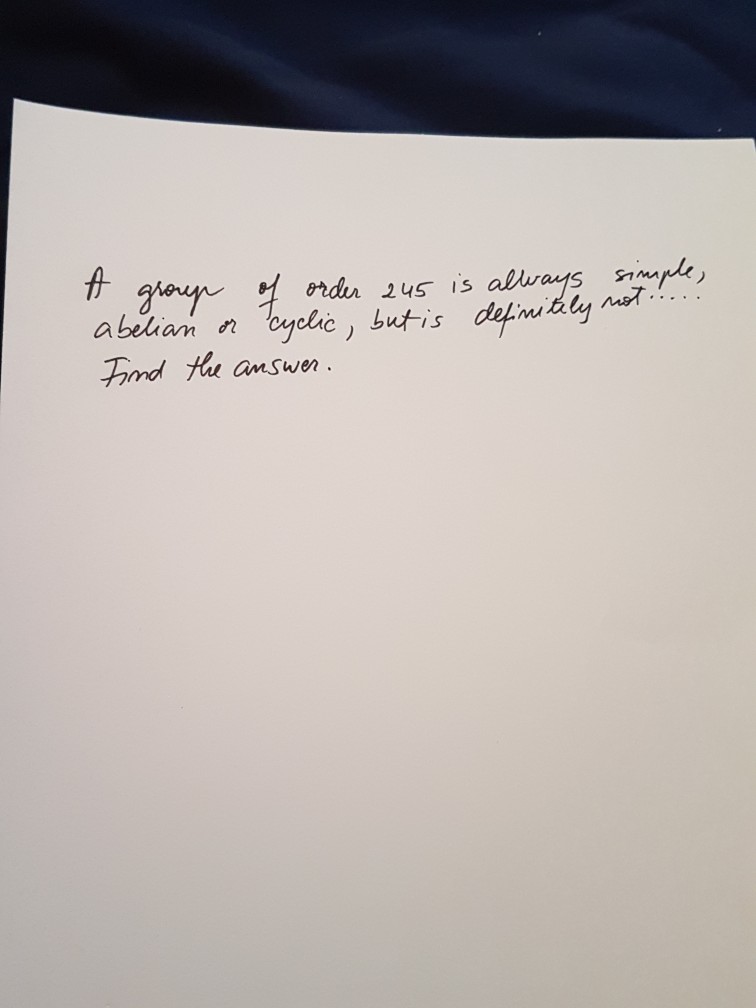 A group of order 245 is always simple,
abelian or cyclic, but is definitely not.....
Find the answer.